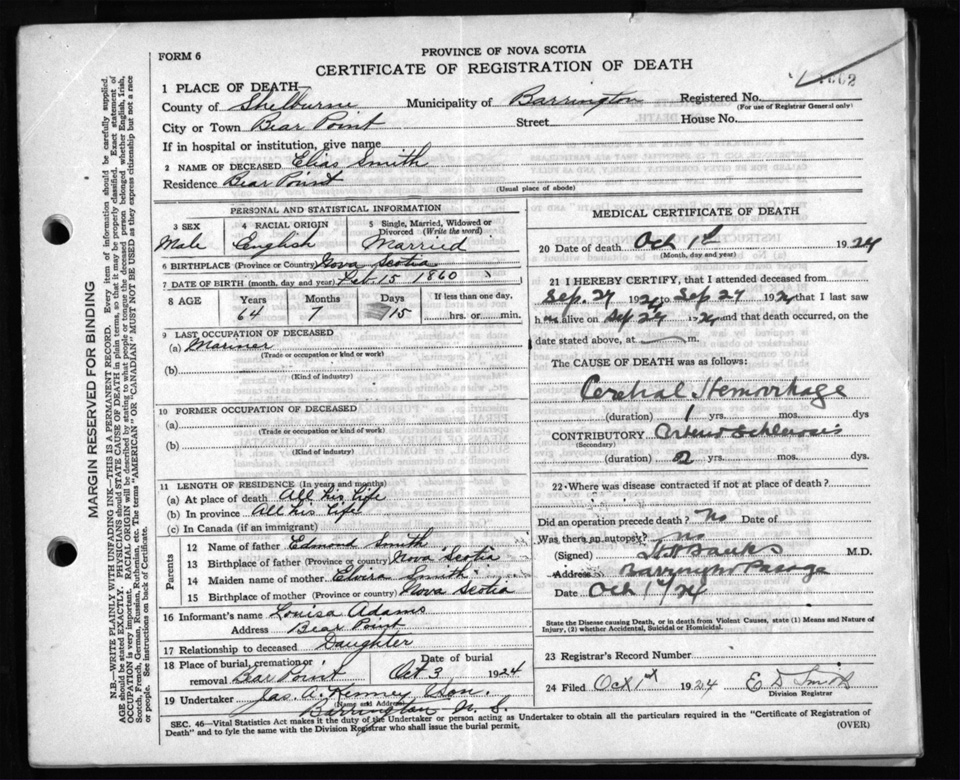 FORM 6
PROVINCE OF NOVA SCOTIA
CERTIFICATE OF REGISTRATION OF DEATH
1 PLACE OF DEATH
County of Shelburne Municipality of Barrington Registered No.
(For use of Registrar General only)
City or Town Bear Point Street House No.
If in hospital or institution, give name
2 NAME OF DECEASED Elias Smith
Residence Bear Point
(Usual place of abode)
PERSONAL AND STATISTICAL INFORMATION
3 SEX 4 RACIAL ORIGIN 5 Single, Married, Widowed or Divorced (Write the word)
Male English Married
6 BIRTHPLACE (Province or Country) Nova Scotia
7 DATE OF BIRTH (month, day and year) Feb. 15 1860
8 AGE Years Months Days If less than one day,
64 7 15 hrs. or min.
9 LAST OCCUPATION OF DECEASED
(a) Mariner
(Trade or occupation or kind or work)
(b)
(Kind of industry)
10 FORMER OCCUPATION OF DECEASED
(a)
(Trade or occupation or kind or work)
(b)
(Kind of industry)
11 LENGTH OF RESIDENCE (In years and months)
(a) At place of death All his life
(b) In province All his life
(c) In Canada (if an immigrant)
Parents
12 Name of father Edmond Smith
13 Birthplace of father (Province or country) Nova Scotia
14 Maiden name of mother Elvira Smith
15 Birthplace of mother (Province or country) Nova Scotia
16 Informant's name Louisa Adams
Address Bear Point
17 Relationship to deceased Daughter
18 Place of burial, cremation or removal Bear Point Date of burial Oct 3 1924
19 Undertaker Jas. A. Kenney Son.
(Name and Address)
Barrington N. S.
MEDICAL CERTIFICATE OF DEATH
20 Date of death Oct 1st 1924
(Month, day and year)
21 I HEREBY CERTIFY, that I attended deceased from
Sep. 27 1924 to Sep 27 1924 that I last saw
h im alive on Sep 27 1924 and that death occurred, on the
date stated above, at m.
The CAUSE OF DEATH was as follows:
Cerebral Hemorrhage
(duration) 1 yrs. mos. dys
CONTRIBUTORY Arterio Schlerosis
(Secondary)
(duration) 2 yrs. mos. dys
22 Where was disease contracted if not at place of death?
Did an operation precede death? No Date of
Was there an autopsy? No
(Signed) Banks M.D.
Address Barrington Passage
Date Oct 1/24
State the Disease causing Death, or in death from Violent Causes, state (1) Means and Nature of
Injury, (2) whether Accidental, Suicidal or Homicidal.
23 Registrar's Record Number
24 Filed Oct 1st 1924 E D Smith
Division Registrar
SEC. 46—Vital Statistics Act makes it the duty of the Undertaker or person acting as Undertaker to obtain all the particulars required in the "Certificate of Registration of
Death" and to fyle the same with the Division Registrar who shall issue the burial permit.
(OVER)
MARGIN RESERVED FOR BINDING
N.B.—WRITE PLAINLY WITH UNFADING INK—THIS IS A PERMANENT RECORD. Every item of information should be carefully supplied.
AGE should be stated EXACTLY. PHYSICIANS should STATE CAUSE OF DEATH in plain terms, so that it may be properly classified. Exact statement of
OCCUPATION is very important. RACIAL ORIGIN will be described by stating to what people or tongue the deceased person belonged whether English, Irish,
Scotch, French, German, Russian, Ruthenian, etc. The terms "AMERICAN" OR "CANADIAN" MUST NOT BE USED as they express citizenship but not a race
or people. See instructions on back of Certificate.